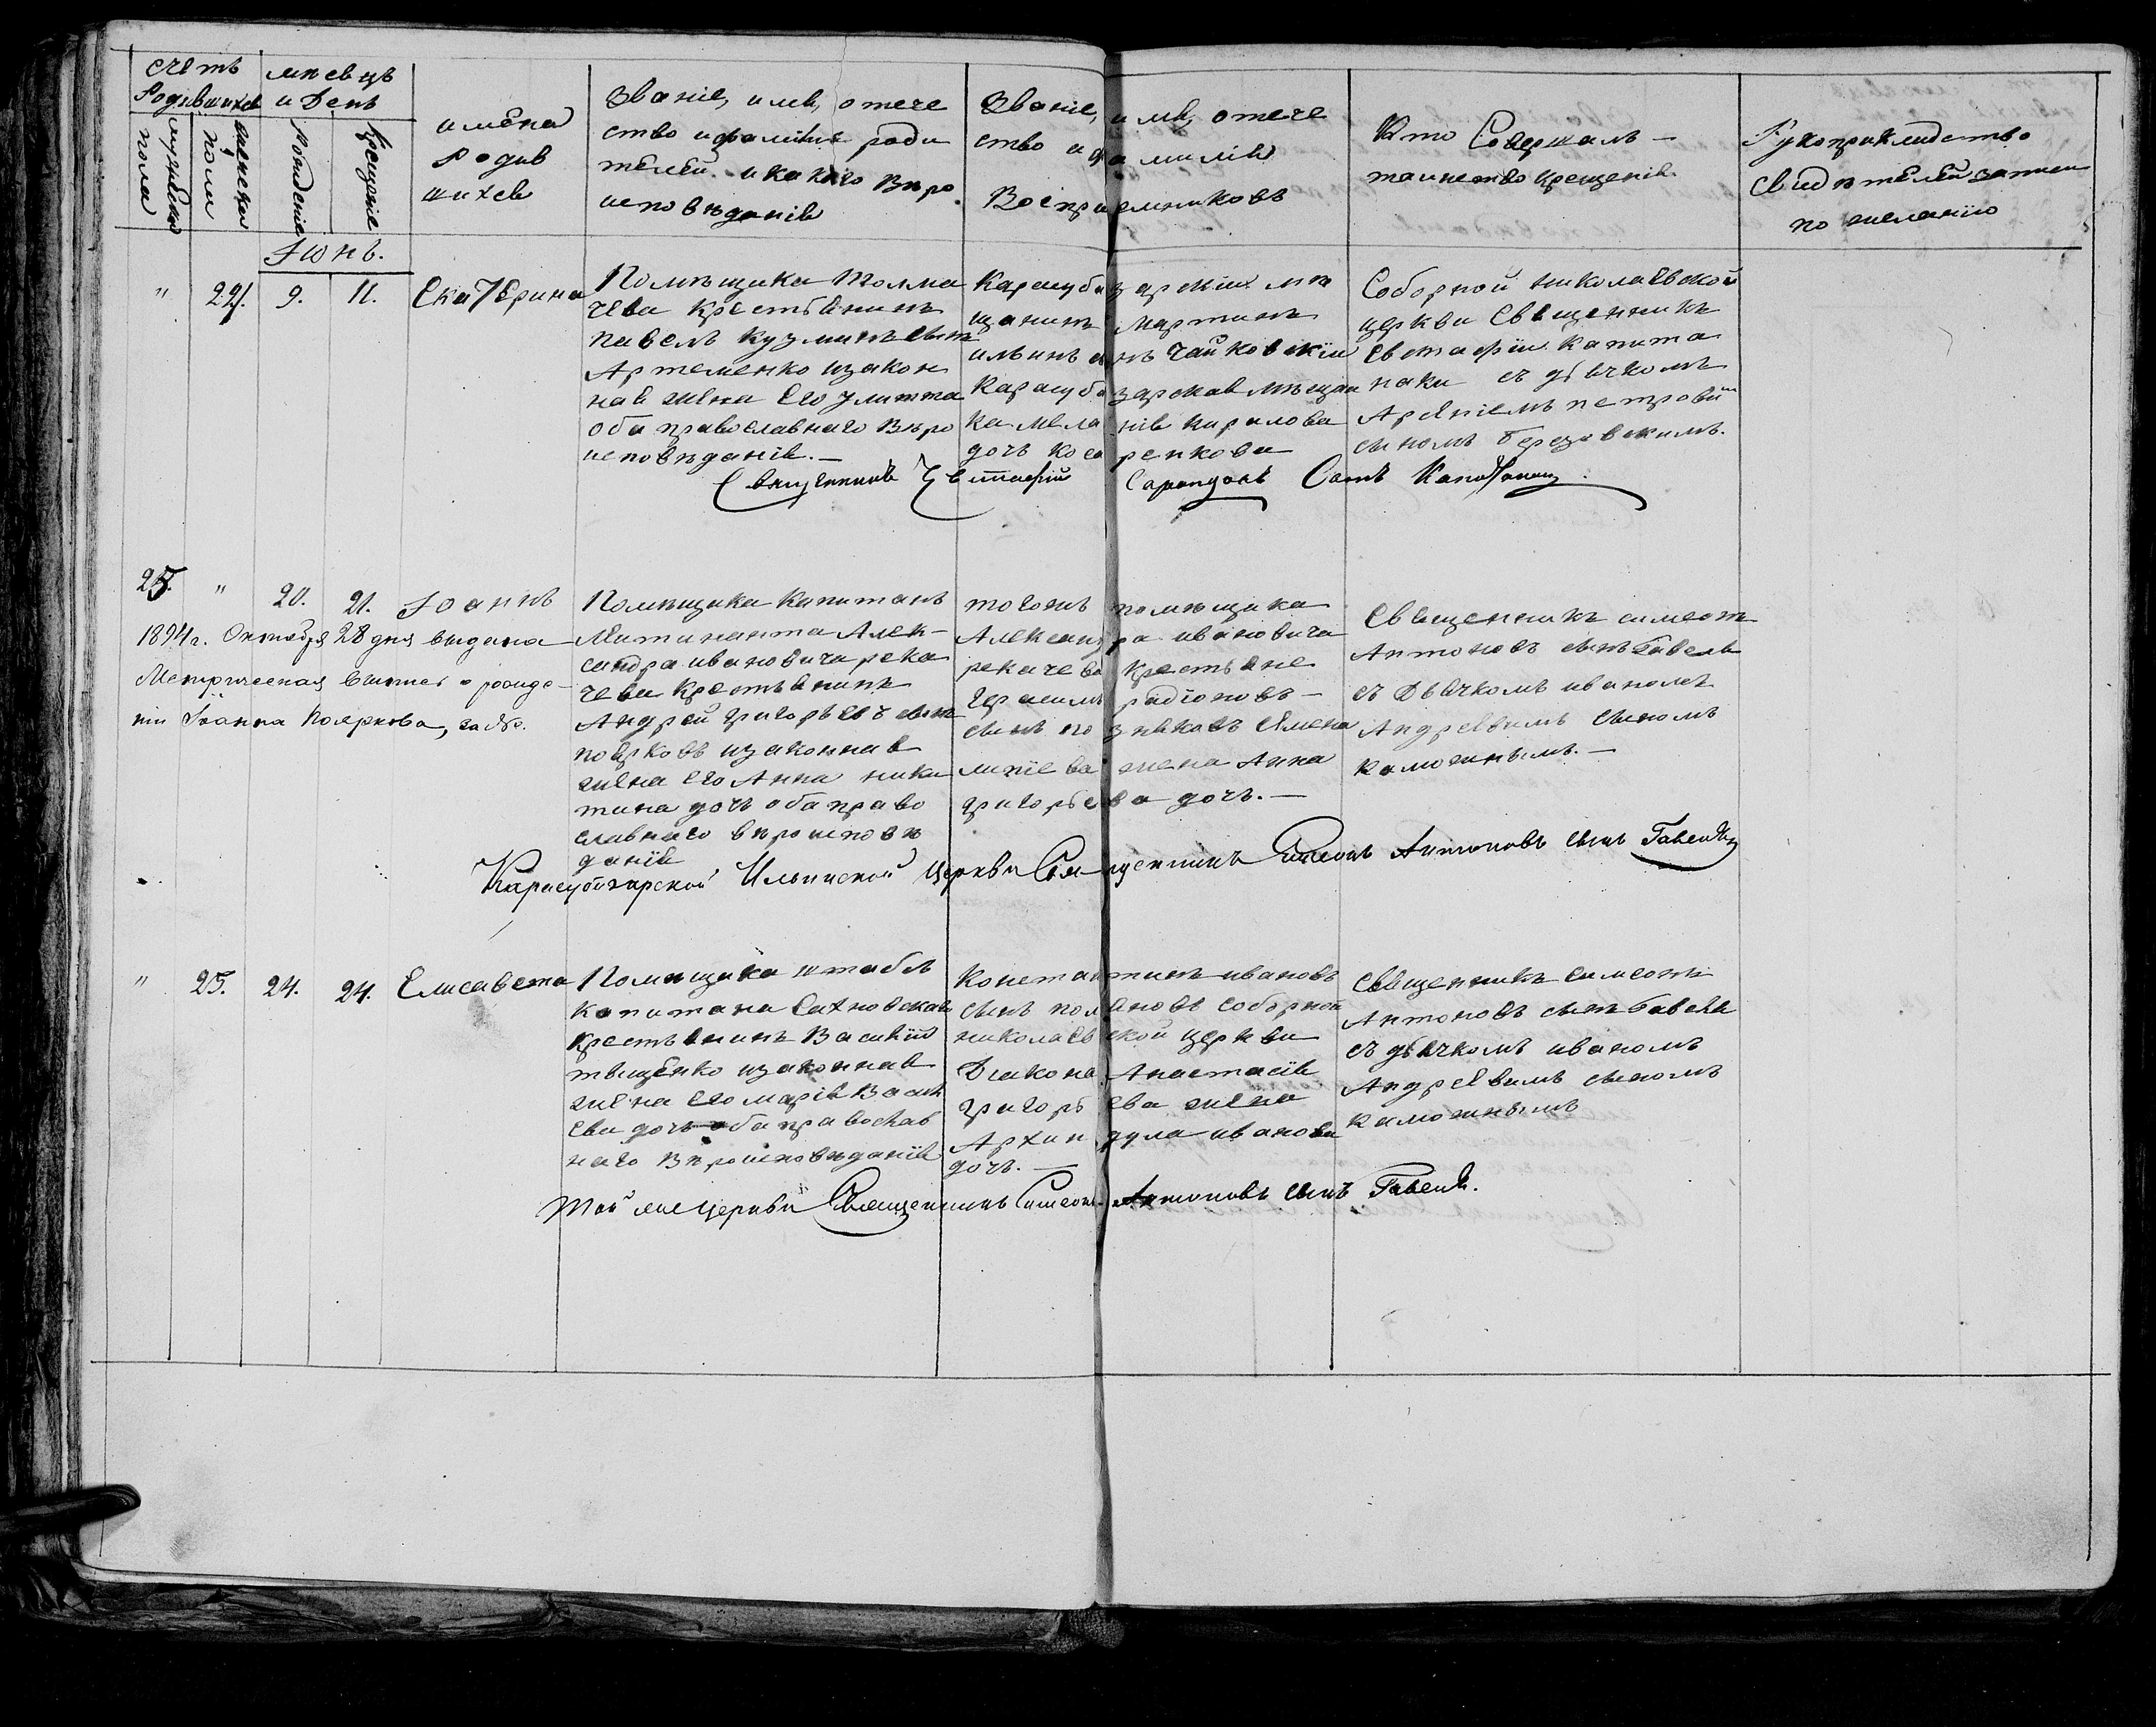 счетъ
Родившихся
мѣсяцъ
и день
мужеска
пола
женска
пола
Рожденіе
Крещеніе
имена
Родив
шихся
Званіе, имя, отече
ство и фамилія роди
телей. и какаго Вѣро
исповѣданія
Званіе, имя, отече
ство и фамилія
Воспріемниковъ
Кто Совершалъ —
таинство крещенія
Рукоприкладство
свидѣтелей записи
по желанію
Іюнь.
" 24. 9. 11. Екатерина
Помѣщика Толма
чева крестьянинъ
павелъ кузминъ сынъ
Артеменко изакон
ная жена его улитта
оба православнаго Вѣро
исповѣданія. —
Карасубазарскій мѣ
щанинъ Мартинъ
ильинъ сынъ Чайковскій
Карасубазарская мѣщан
ка меланія кирилова
дочь косаренкова
Соборной николаевской
церкви Священникъ
Евстафій Капита
наки съ дьячкомъ
Арсеніемъ петровы
сыномъ березовскимъ.
Священникъ Евстафій Сынъ
25. " 20. 21. Іоаннъ
1894 г. Октября 28 дня выдана
Метрическая выпись о рожде-
ніи Іоанна Пояркова, за №.
Помѣщика Капитанъ
Лейтинанта Алек-
сандра ивановича река
чева крестьянинъ
Андрей григорьевъ сынъ
поярковъ изаконная
жена его Анна ники
тина дочь оба право
славнаго вѣроисповѣ
данія
тогожъ помѣщика
Александра ивановича
рекачева крестьяне
Герасимъ радіоновъ —
сынъ познековъ
жена Анна
григорьева дочь. —
Священникъ симеонъ
Антоновъ сынъ Гавеля
съ Дьячкомъ иваномъ
Андреевымъ сыномъ
каможнымъ. —
Карасубазарской Ильинской Церкви Священникъ Симеонъ Антоновъ сынъ Гавеля
" 25. 24. 24. Елисавета
Помѣщика штабсъ
капитана Сахновскаго
крестьянинъ Василій
тыщенко изаконная
жена его марія Васил
ева дочь оба православ
наго Вѣроисповѣданія
Константинъ ивановъ
сынъ поляновъ соборной
николаевской церкви
Діакона Анастасія
григорьева жена
иванова
дочь. —
Священникъ Симеонъ
Антоновъ сынъ Гавеля
съ дьячкомъ иваномъ
Андреевымъ сыномъ
каможнымъ
Той же церкви Священникъ Симеонъ Антоновъ сынъ Гавеля.